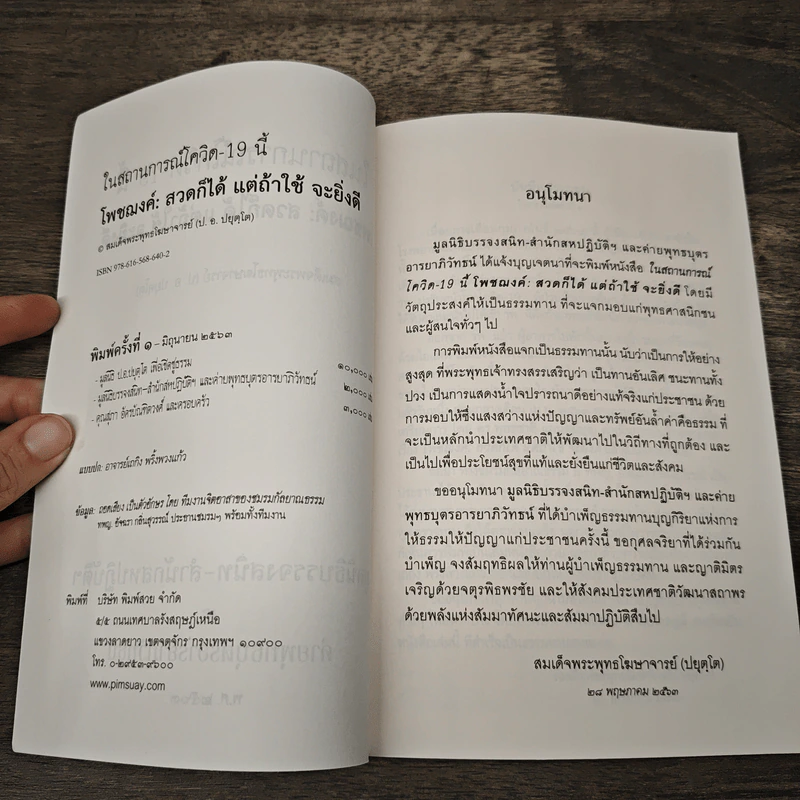 ในสถานการณ์โควิด-19 นี้
โพชฌงค์: สวดก็ได้ แต่ถ้าใช้ จะยิ่งดี
© สมเด็จพระพุทธโฆษาจารย์ (ป. อ. ปยุตฺโต)
ISBN 978-616-568-640-2
พิมพ์ครั้งที่ ๑ – มิถุนายน ๒๕๖๓
- มูลนิธิ ป.อ.ปยุตฺโต เพื่อเชิดชูธรรม ๑๐,๐๐๐
- มูลนิธิบรรจงสนิท-สำนักสหปฏิบัติฯ และค่ายพุทธบุตรอารยาภิวัทธน์ ๒,๐๐๐
- คุณสุภา อัครบัณฑิตวงศ์ และครอบครัว ๓,๐๐๐
แบบปก: อาจารย์เถกิง พรั้งพวงแก้ว
ข้อมูล: ถอดเสียง เป็นตัวอักษร โดย ทีมงานจิตอาสาของชมรมกัลยาณธรรม
ทพญ. อัจฉรา กลิ่นสุวรรณ์ ประธานชมรมฯ พร้อมทั้งทีมงาน
พิมพ์ที่ บริษัท พิมพ์สวย จำกัด
๕/๕ ถนนเทศบาลรังสฤษฎ์เหนือ
แขวงลาดยาว เขตจตุจักร กรุงเทพฯ ๑๐๙๐๐
โทร. ๐-๒๙๕๓-๙๖๐๐
www.pimsuay.com
อนุโมทนา
มูลนิธิบรรจงสนิท-สำนักสหปฏิบัติฯ และค่ายพุทธบุตร
อารยาภิวัทธน์ ได้แจ้งบุญเจตนาที่จะพิมพ์หนังสือ ในสถานการณ์
โควิด-19 นี้ โพชฌงค์: สวดก็ได้ แต่ถ้าใช้ จะยิ่งดี โดยมี
วัตถุประสงค์ให้เป็นธรรมทาน ที่จะแจกมอบแก่พุทธศาสนิกชน
และผู้สนใจทั่วๆ ไป
การพิมพ์หนังสือแจกเป็นธรรมทานนั้น นับว่าเป็นการให้อย่าง
สูงสุด ที่พระพุทธเจ้าทรงสรรเสริญว่า เป็นทานอันเลิศ ชนะทานทั้ง
ปวง เป็นการแสดงน้ำใจปรารถนาดีอย่างแท้จริงแก่ประชาชน ด้วย
การมอบให้ซึ่งแสงสว่างแห่งปัญญาและทรัพย์อันล้ำค่าคือธรรม ที่
จะเป็นหลักนำประเทศชาติให้พัฒนาไปในวิถีทางที่ถูกต้อง และ
เป็นไปเพื่อประโยชน์สุขที่แท้และยั่งยืนแก่ชีวิตและสังคม
ขออนุโมทนา มูลนิธิบรรจงสนิท-สำนักสหปฏิบัติฯ และค่าย
พุทธบุตรอารยาภิวัทธน์ ที่ได้บำเพ็ญธรรมทานบุญกิริยาแห่งการ
ให้ธรรมให้ปัญญาแก่ประชาชนครั้งนี้ ขอกุศลจริยาที่ได้ร่วมกัน
บำเพ็ญ จงสัมฤทธิผลให้ท่านผู้บำเพ็ญธรรมทาน และญาติมิตร
เจริญด้วยจตุรพิธพรชัย และให้สังคมประเทศชาติวัฒนาสถาพร
ด้วยพลังแห่งสัมมาทัศนะและสัมมาปฏิบัติสืบไป
สมเด็จพระพุทธโฆษาจารย์ (ปยุตฺโต)
๒๘ พฤษภาคม ๒๕๖๓